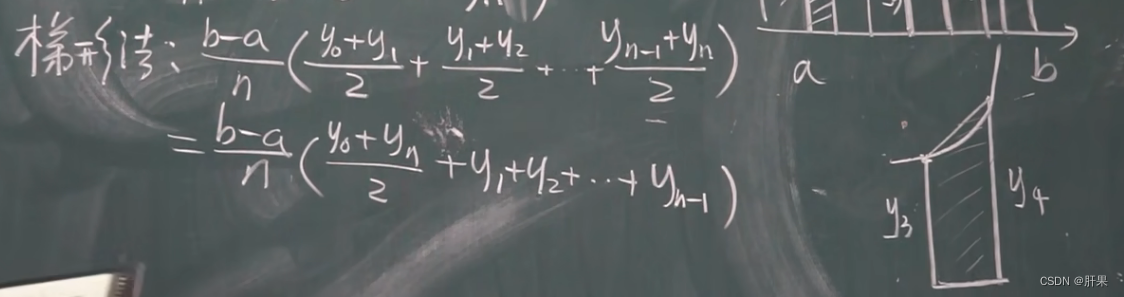 梯形法: \frac{b-a}{n}(\frac{y_0+y_1}{2}+\frac{y_1+y_2}{2}+\cdots+\frac{y_{n-1}+y_n}{2})
=\frac{b-a}{n}(\frac{y_0+y_n}{2}+y_1+y_2+\cdots+y_{n-1})
a b
y_3 y_4
CSDN @肝果